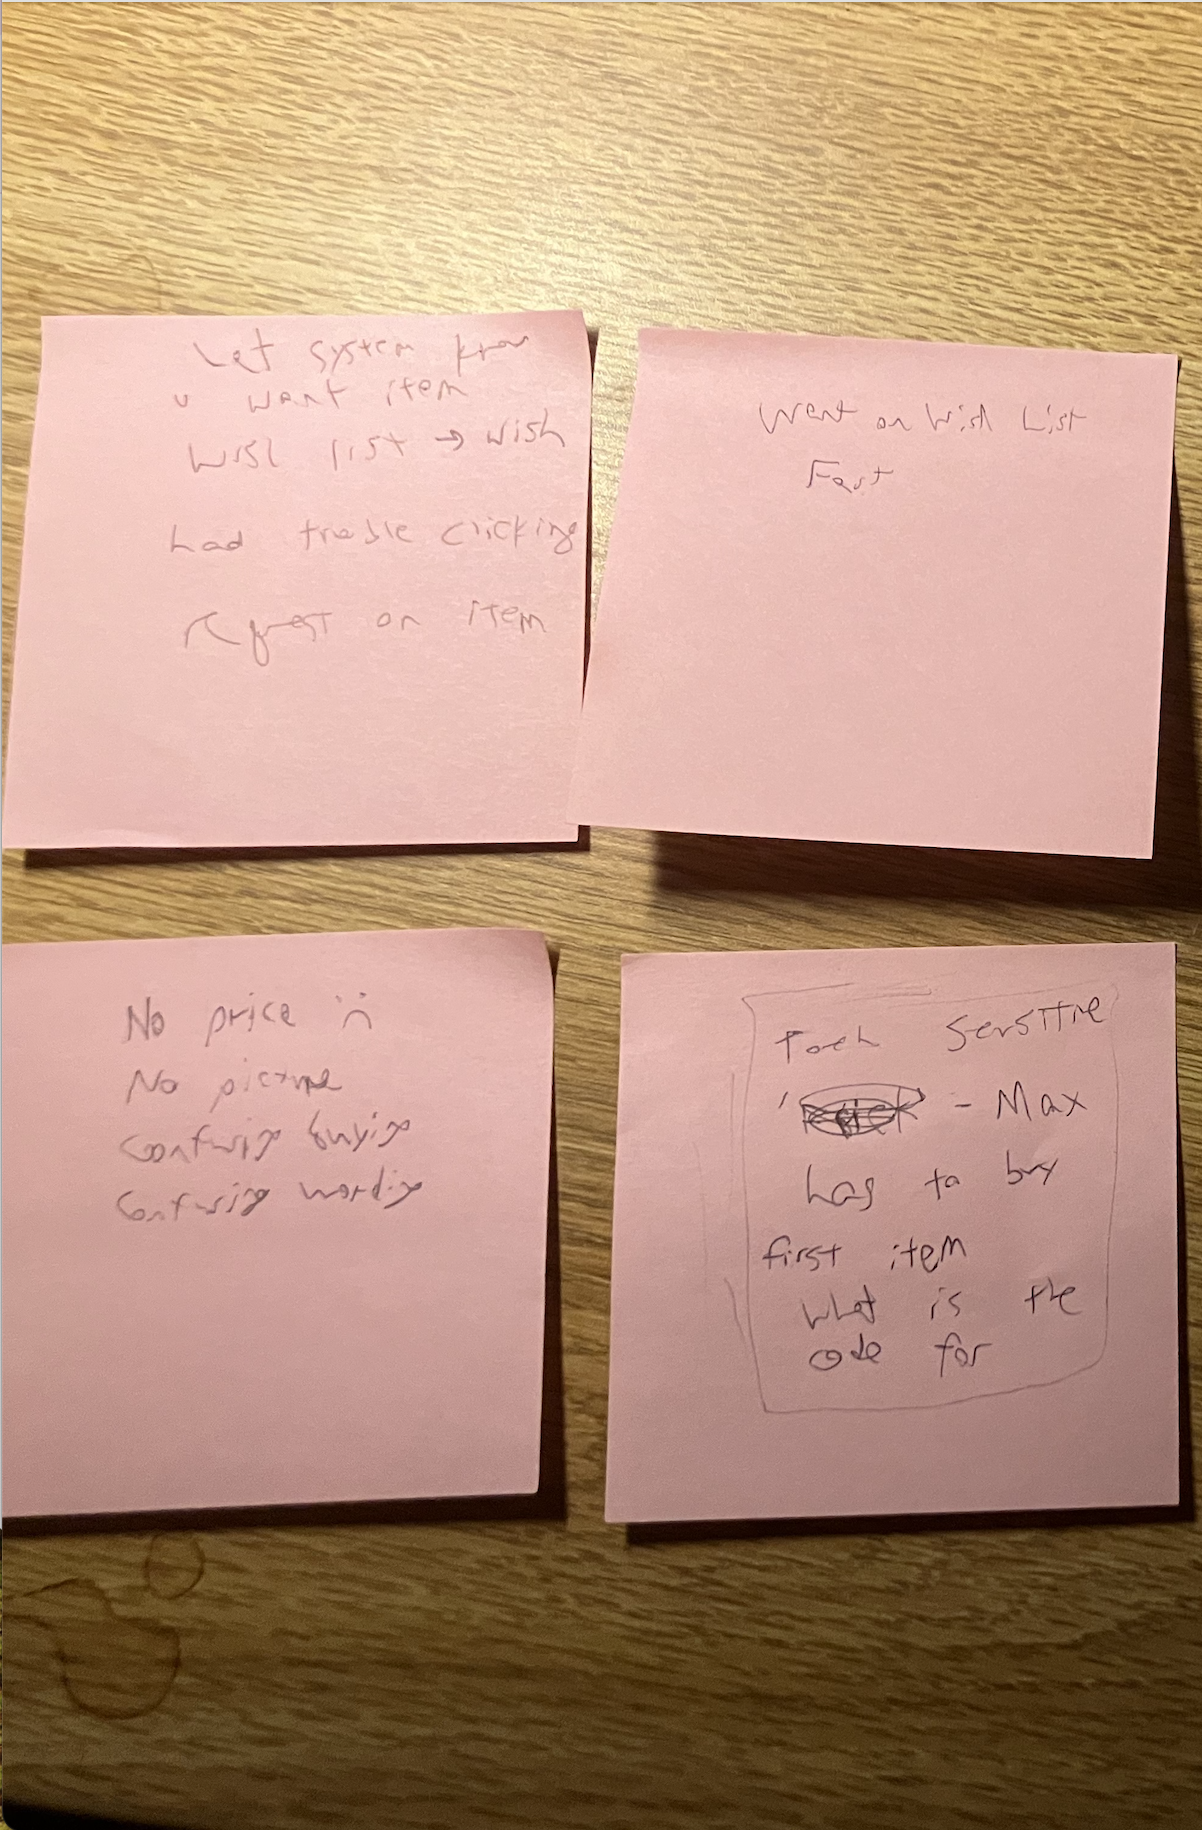 Let system know
u want item
Wish list → wish
had trouble clicking
request on item
Went on Wish List
Fast
No price :(
No picture
Confusing buying
Confusing wording
Touch Sensitive
- Max
has to buy
first item
what is the
code for